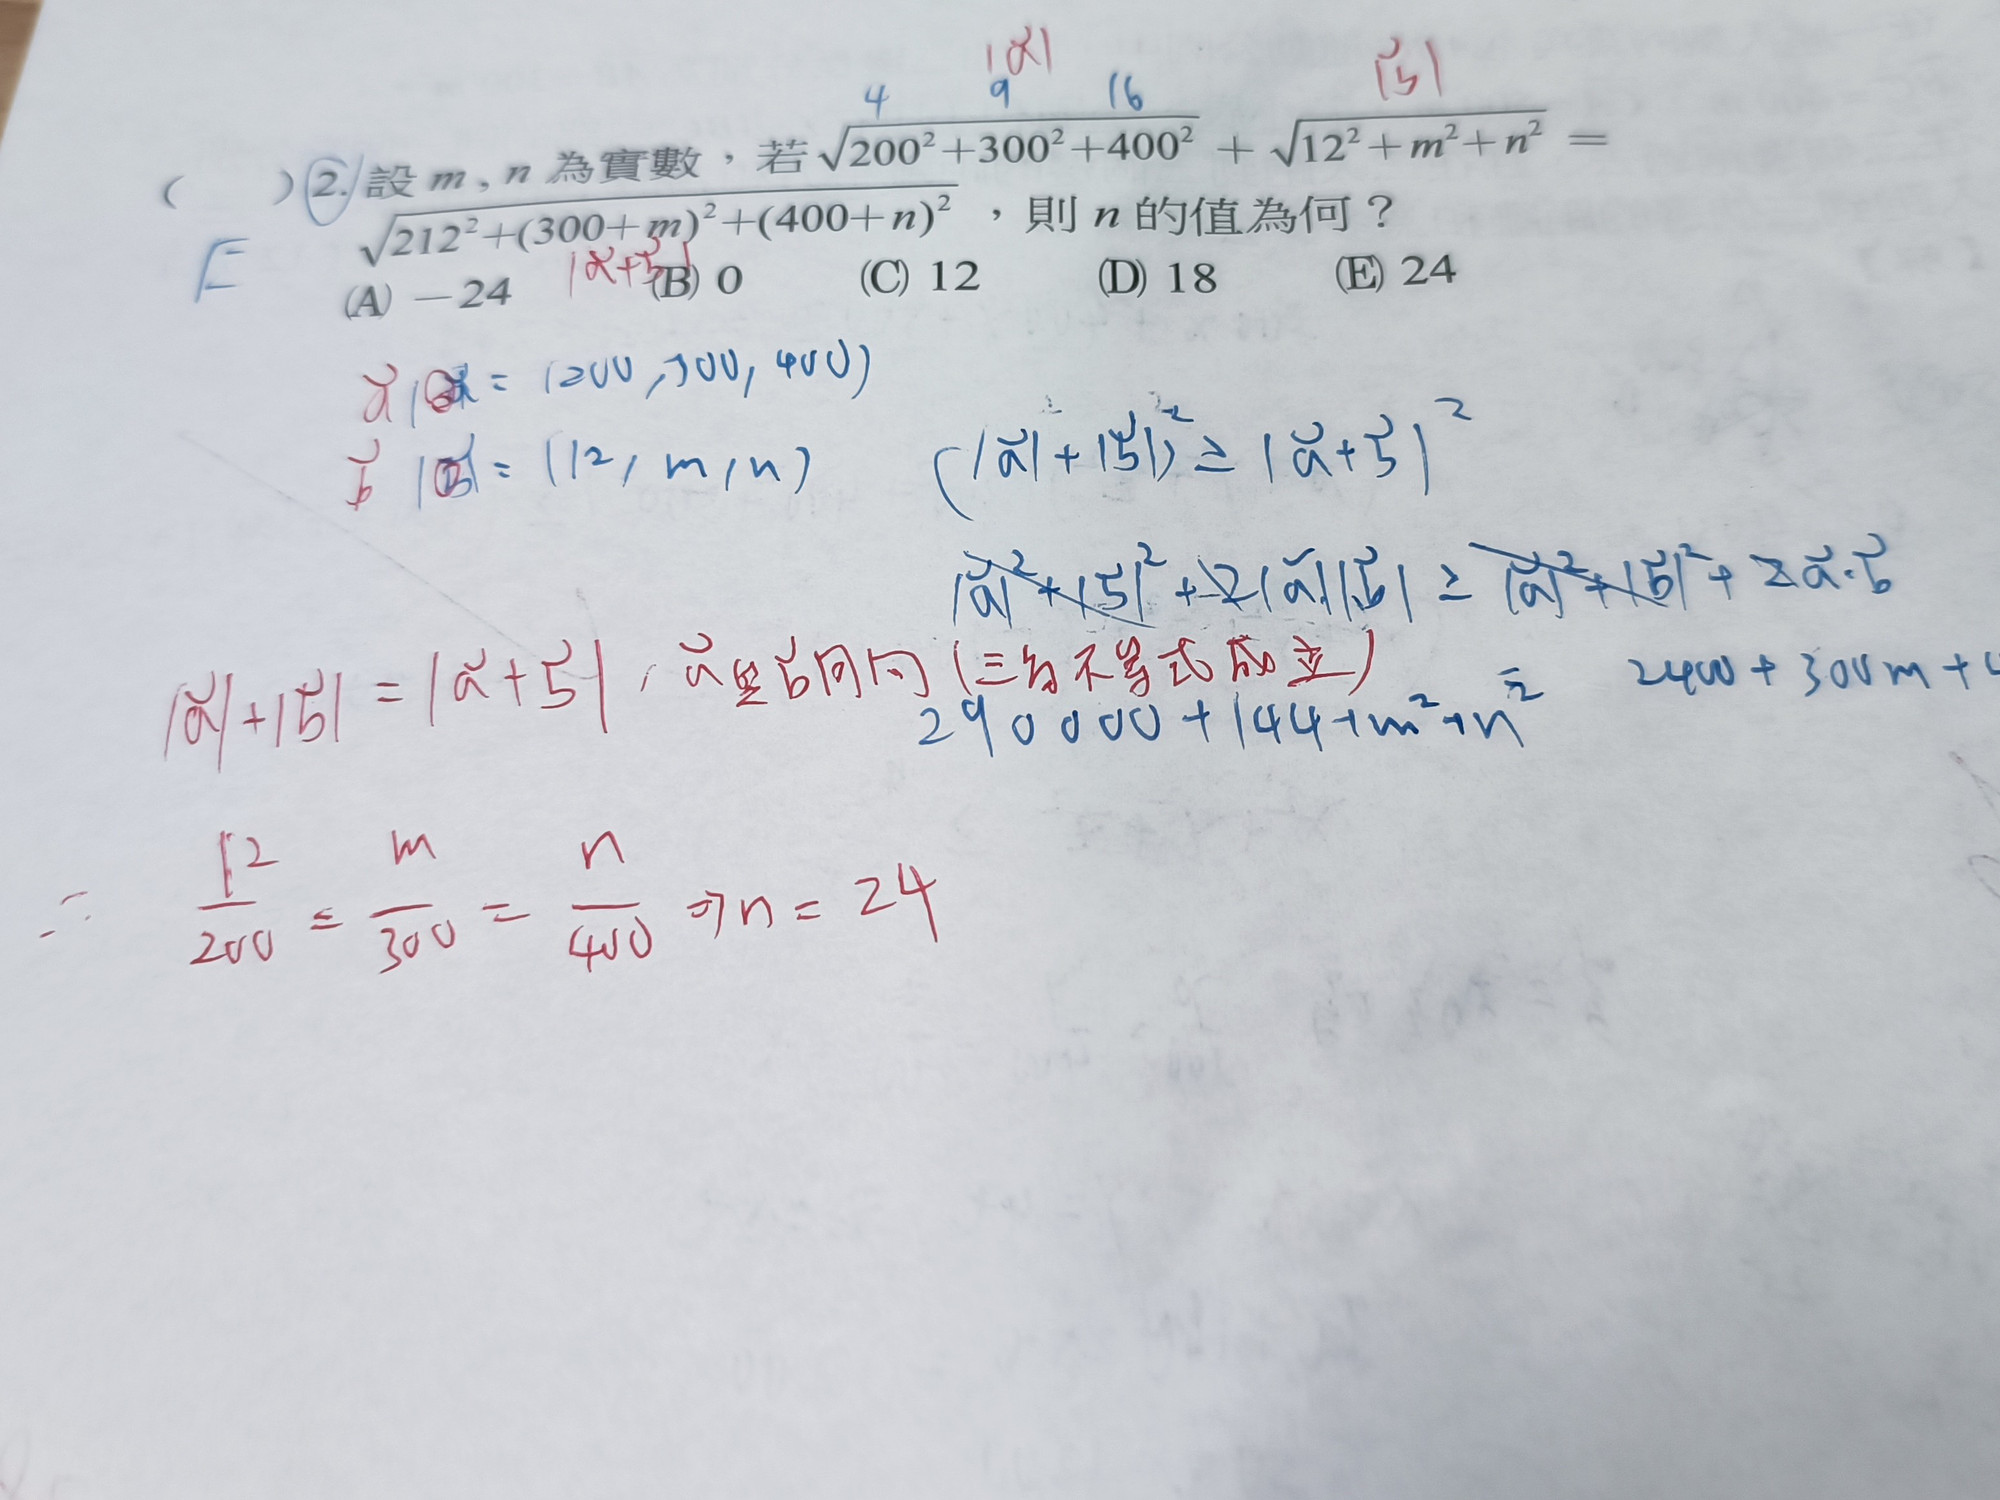 |a⃗|
|b⃗|
4 9 16
( )2. 設 m , n 為實數，若 √(200²+300²+400²) + √(12²+m²+n²) =
√(212²+(300+m)²+(400+n)²) ，則 n 的值為何？
E
|a⃗+b⃗|
(A) −24 (B) 0 (C) 12 (D) 18 (E) 24
a⃗ = (200,300,400)
b⃗ = (12, m, n)
(|a⃗|+|b⃗|)² ≥ |a⃗+b⃗|²
|a⃗|²+|b⃗|²+2|a⃗||b⃗| ≥ |a⃗|²+|b⃗|²+2a⃗·b⃗
|a⃗|+|b⃗| = |a⃗+b⃗| , a⃗與b⃗同向 (三角不等式成立)
290000+144+m²+n² = 2400+300m+4
∴ 12/200 = m/300 = n/400 ⇒ n = 24